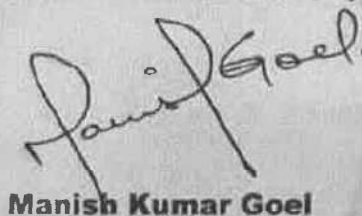 Manish Goel
Manish Kumar Goel